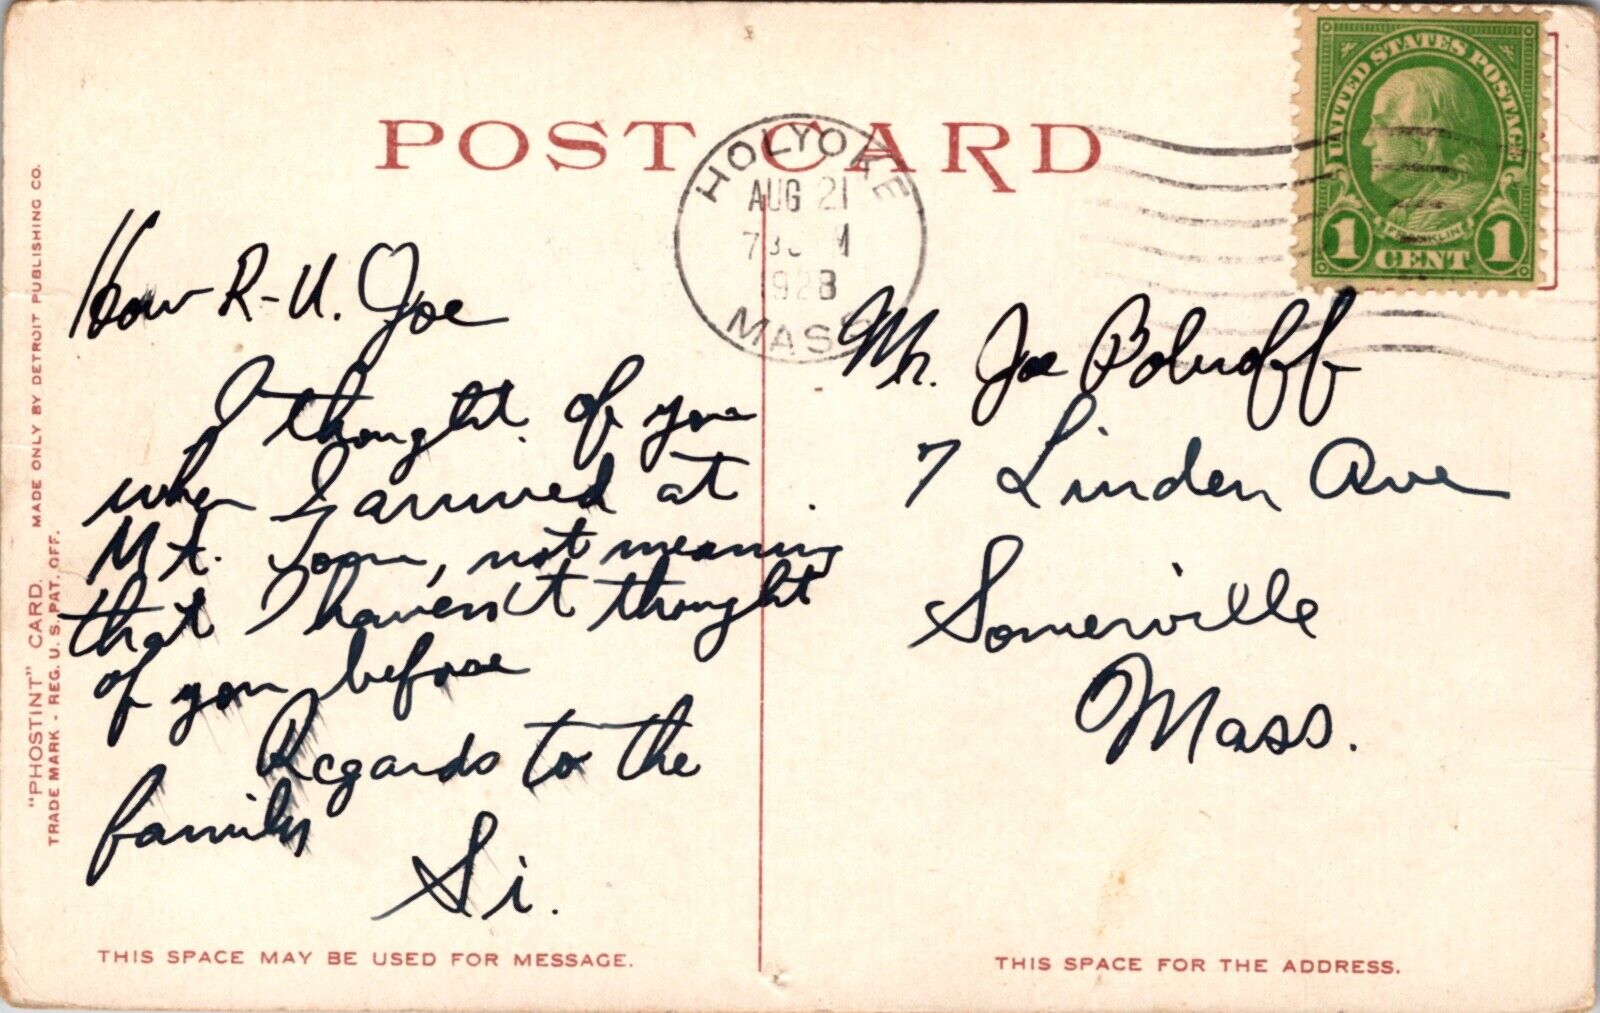 POST CARD
HOLYOKE
AUG 21
1928
MASS
UNITED STATES POSTAGE
FRANKLIN
1 CENT 1
How R-U. Joe
I thought of you
when I arrived at
Mt. Tom, not meaning
that I haven't thought
of you before
Regards to the
family
Si.
Mr. Joe Bobroff
7 Linden Ave
Somerville
Mass.
"PHOSTINT" CARD. MADE ONLY BY DETROIT PUBLISHING CO.
TRADE MARK - REG. U. S. PAT. OFF.
THIS SPACE MAY BE USED FOR MESSAGE.
THIS SPACE FOR THE ADDRESS.